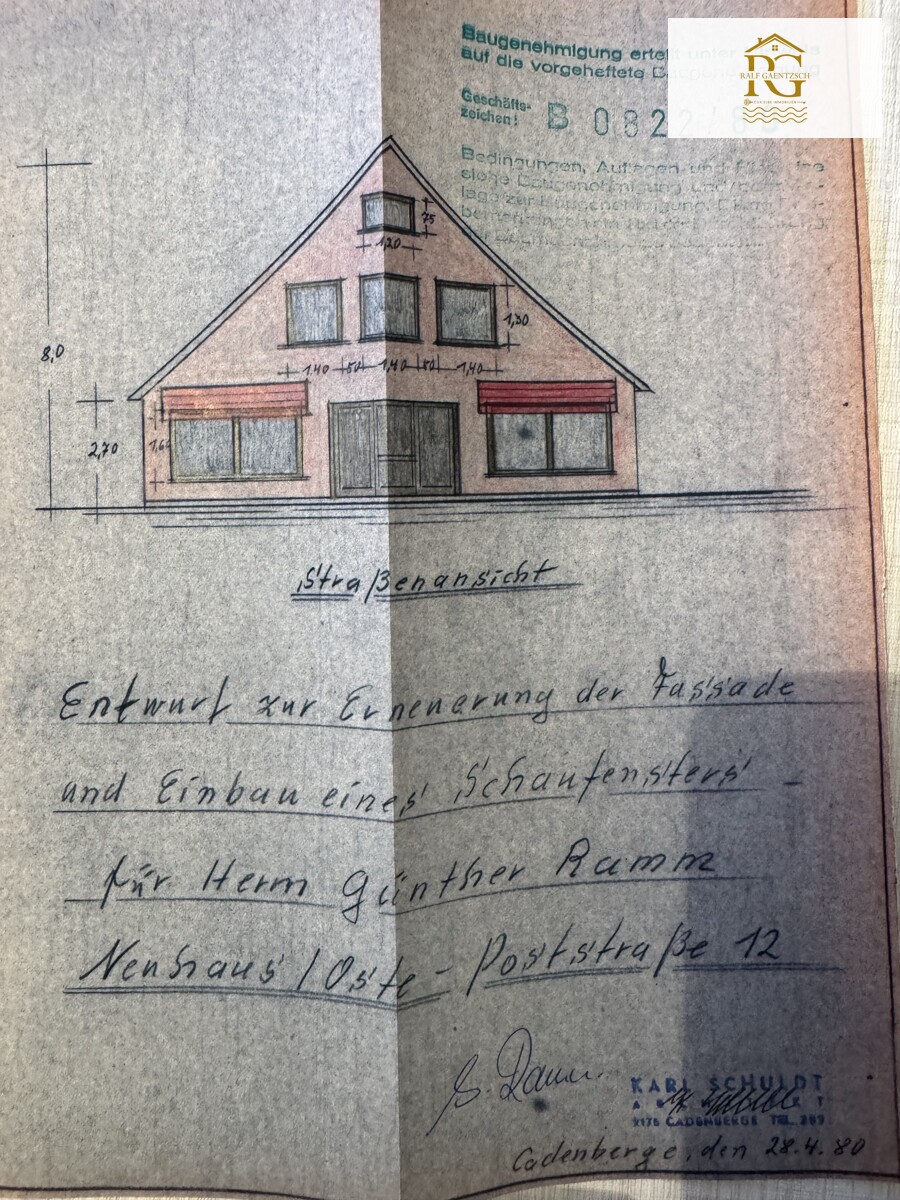 Baugenehmigung erteilt unter
auf die vorgeheftete
RG
RALF GAENTZSCH
Geschäfts-
zeichen:
B 0822/80
Bedingungen, Auflagen und
siehe Baugenehmigung und
lage zur Baugenehmigung.
75
1,20
1,30
8,0
1,40 50 1,40 50 1,40
2,70
1,60
Straßenansicht
Entwurf zur Erneuerung der Fassade
und Einbau eines Schaufensters -
für Herrn Günther Ramm
Neuhaus / Oste - Poststraße 12
G. Ramm
KARL SCHULDT
2175 CADENBERGE TEL. 389
Cadenberge, den 28.4.80